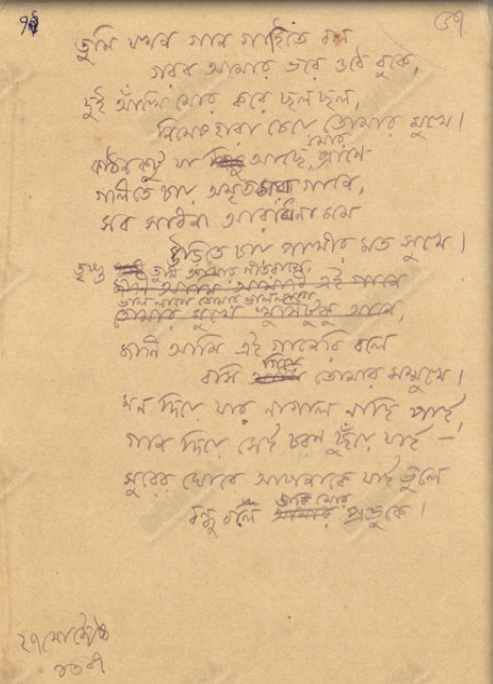 ৩৭
তুমি যখন গান গাহিতে বল
গরব আমার ভরে ওঠে বুকে,
দুই আঁখি মোর করে ছলছল,
নিমেষহারা চেয়ে তোমার মুখে।
কঠিন কটু যা আছে মোর প্রাণে
গলিতে চায় অমৃতময় গানে,
সব সাধনা আরাধনা মম
উড়িতে চায় পাখীর মত সুখে।
তৃপ্ত তুমি আমার গীতরাগে,
ভাল লাগে তোমার ভাল লাগে
জানি আমি এই গানেরি বলে
বসি গিয়ে তোমার সম্মুখে।
মন দিয়ে যার নাগাল নাহি পাই,
গান দিয়ে সেই চরণ ছুঁয়ে যাই —
সুরের ঘোরে আপনাকে যাই ভুলে
বন্ধু বলে ডাকি মোর প্রভুকে।